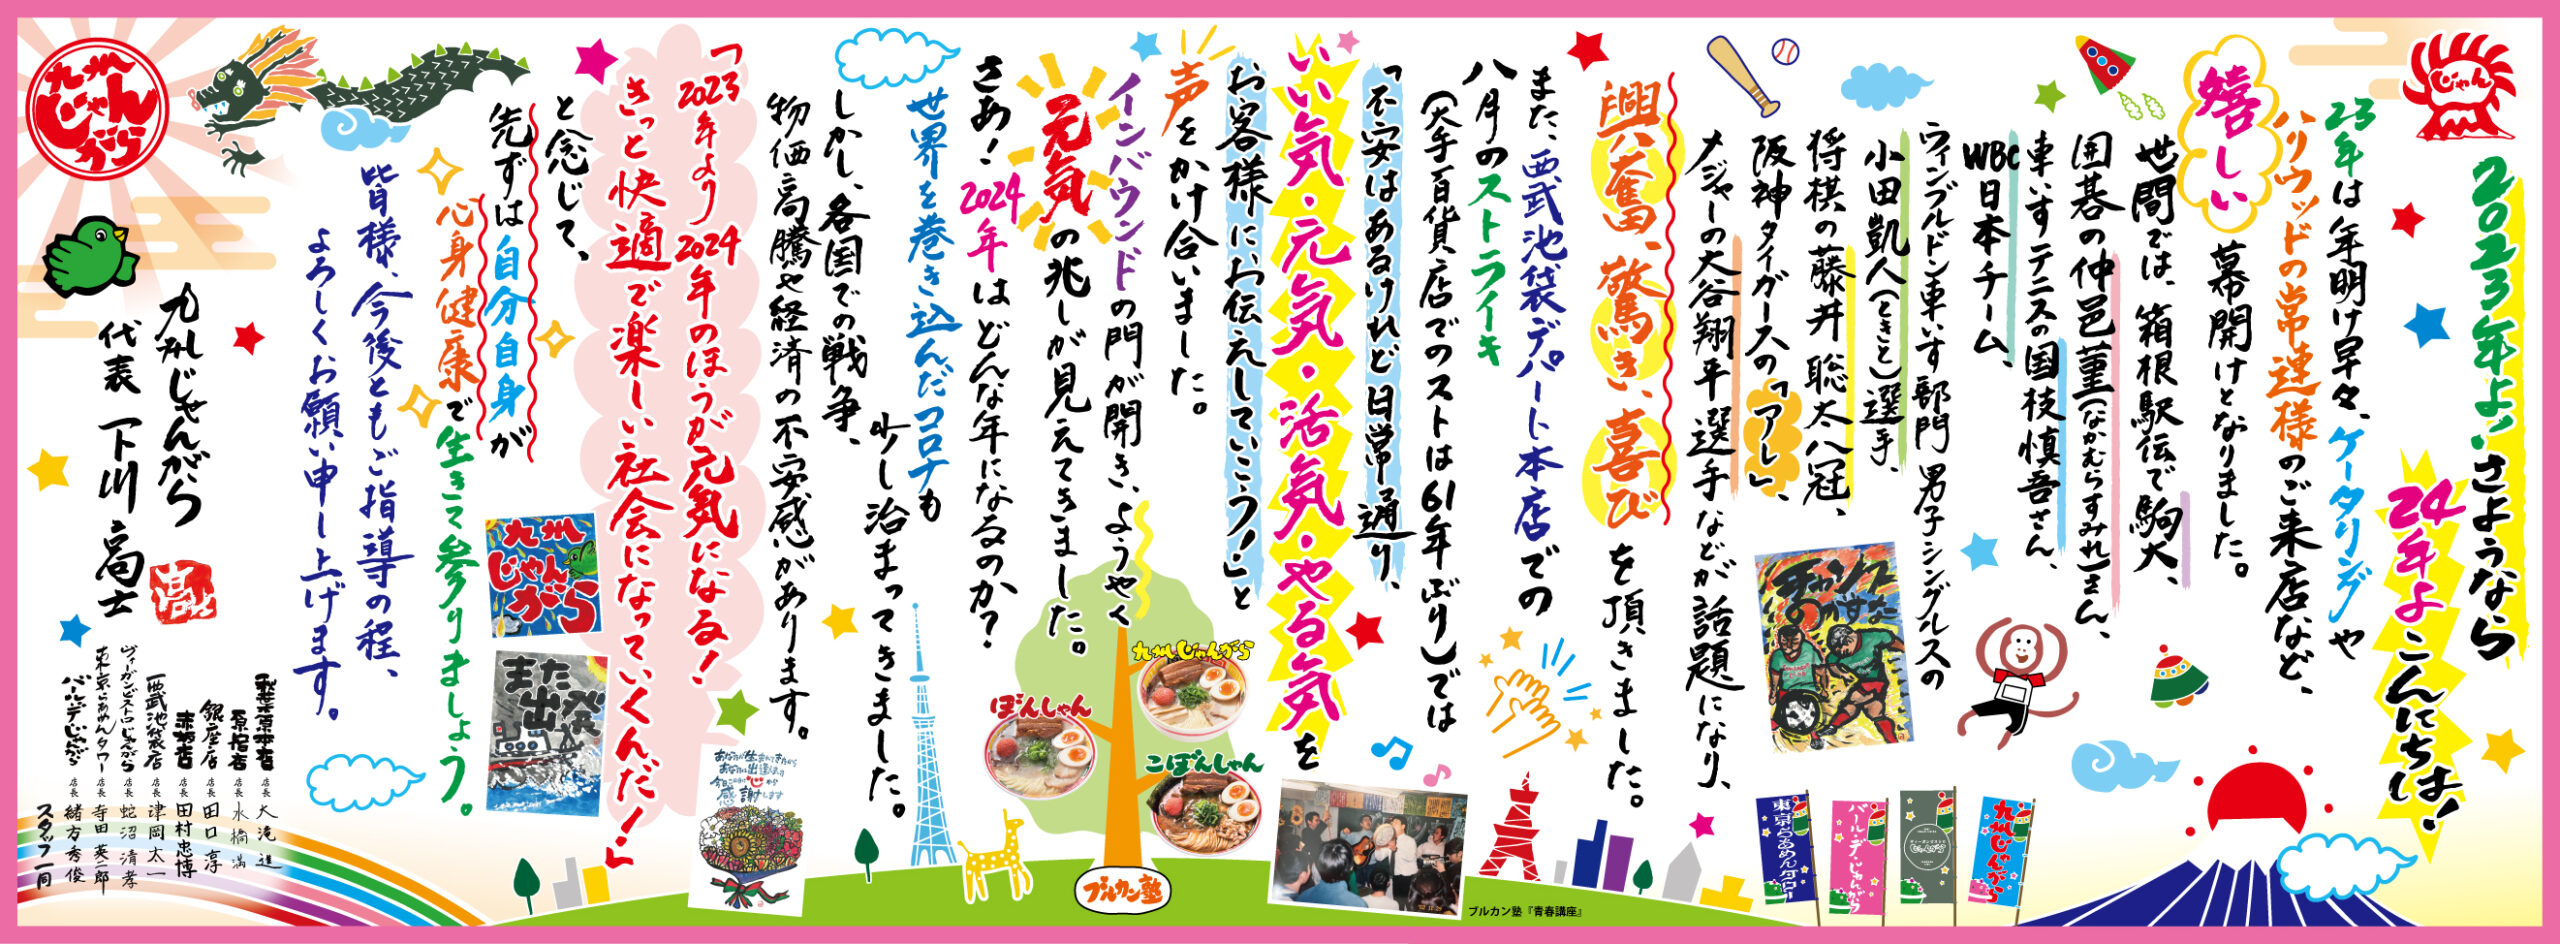 じゃん
2023年よ、さようなら
24年よ こんにちは!
23年は年明け早々、ケータリングや
ハリウッドの常連様のご来店など、
嬉しい 幕開けとなりました。
世間では、箱根駅伝で駒大、
囲碁の仲邑菫(なかむらすみれ)さん、
車いすテニスの国枝慎吾さん、
WBC日本チーム、
ウィンブルドン車いす部門男子シングルスの
小田凱人(ときと)選手、
将棋の藤井聡太八冠、
阪神タイガースの「アレ」、
メジャーの大谷翔平選手などが話題になり、
興奮、驚き、喜びを頂きました。
また、西武池袋デパート本店での
八月のストライキ
(大手百貨店でのストは61年ぶり)では
「不安はあるけれど日常通り、
いい気・元気・活気・やる気を
お客様にお伝えしていこう!」と
声をかけ合いました。
インバウンドの門が開き、ようやく
元気の兆しが見えてきました。
さあ!2024年はどんな年になるのか?
世界を巻き込んだコロナも
少し治まってきました。
しかし、各国での戦争、
物価高騰や経済の不安感があります。
「2023年より2024年のほうが元気になる!
きっと快適で楽しい社会になっていくんだ!」
と念じて、
先ずは自分自身が
心身健康で生きて参りましょう。
皆様、今後ともご指導の程、
よろしくお願い申し上げます。
九州じゃんがら
代表 下川 高士
高
秋葉原本店 店長 大滝 進
原宿店 店長 水橋 満
銀座店 店長 田口 淳
赤坂店 店長 田村 忠博
西武池袋店 店長 津岡 太一
ヴィーガンビストロじゃんがら 店長 蛇沼 清孝
東京らあめんタワー 店長 寺田 英二郎
バール・デ・じゃんがら 店長 緒方 秀俊
スタッフ一同
九州じゃんがら
九州じゃんがら
また出発
あなたが生まれてきたから
あなたに出逢えた
今日この日に心から
感謝します
ぼんしゃん
九州じゃんがら
こぼんしゃん
ブルカン塾
ブルカン塾『青春講座』
チャンスをのがすな
東京らあめんタワー
バール・デ・じゃんがら
じゃんがら
九州じゃんがら